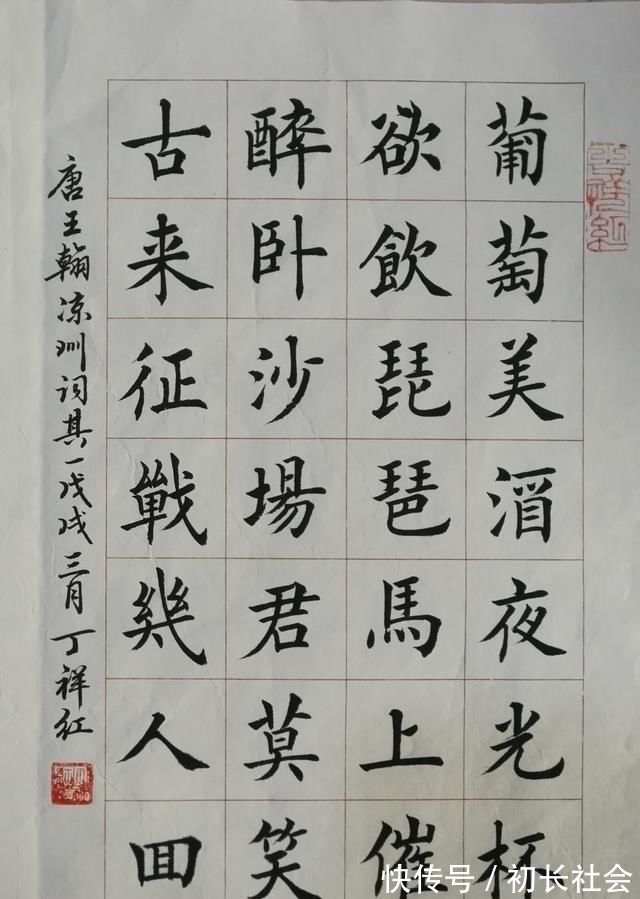 葡萄美酒夜光杯
欲飲琵琶馬上催
醉卧沙場君莫笑
古来征戰幾人囬
唐王翰凉州词其一戊戌三月丁祥红
快传号/初长社会